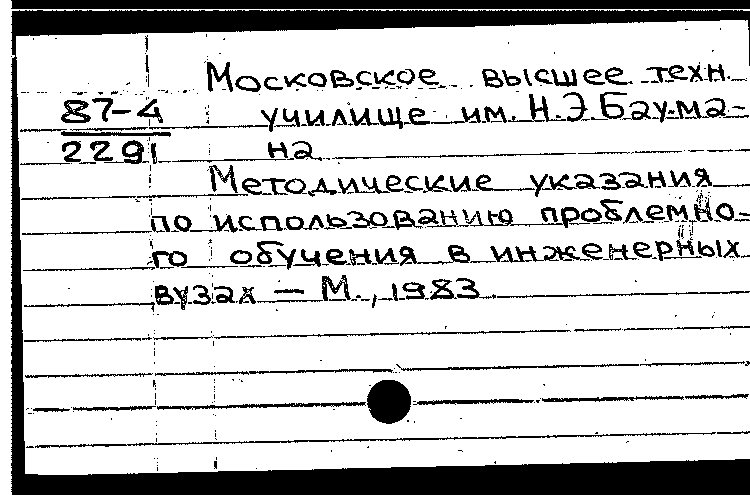 Московское высшее техн.
87-4 училище им. Н.Э.Баума-
2291 на
Методические указания
по использованию проблемно-
го обучения в инженерных
вузах — М., 1983.